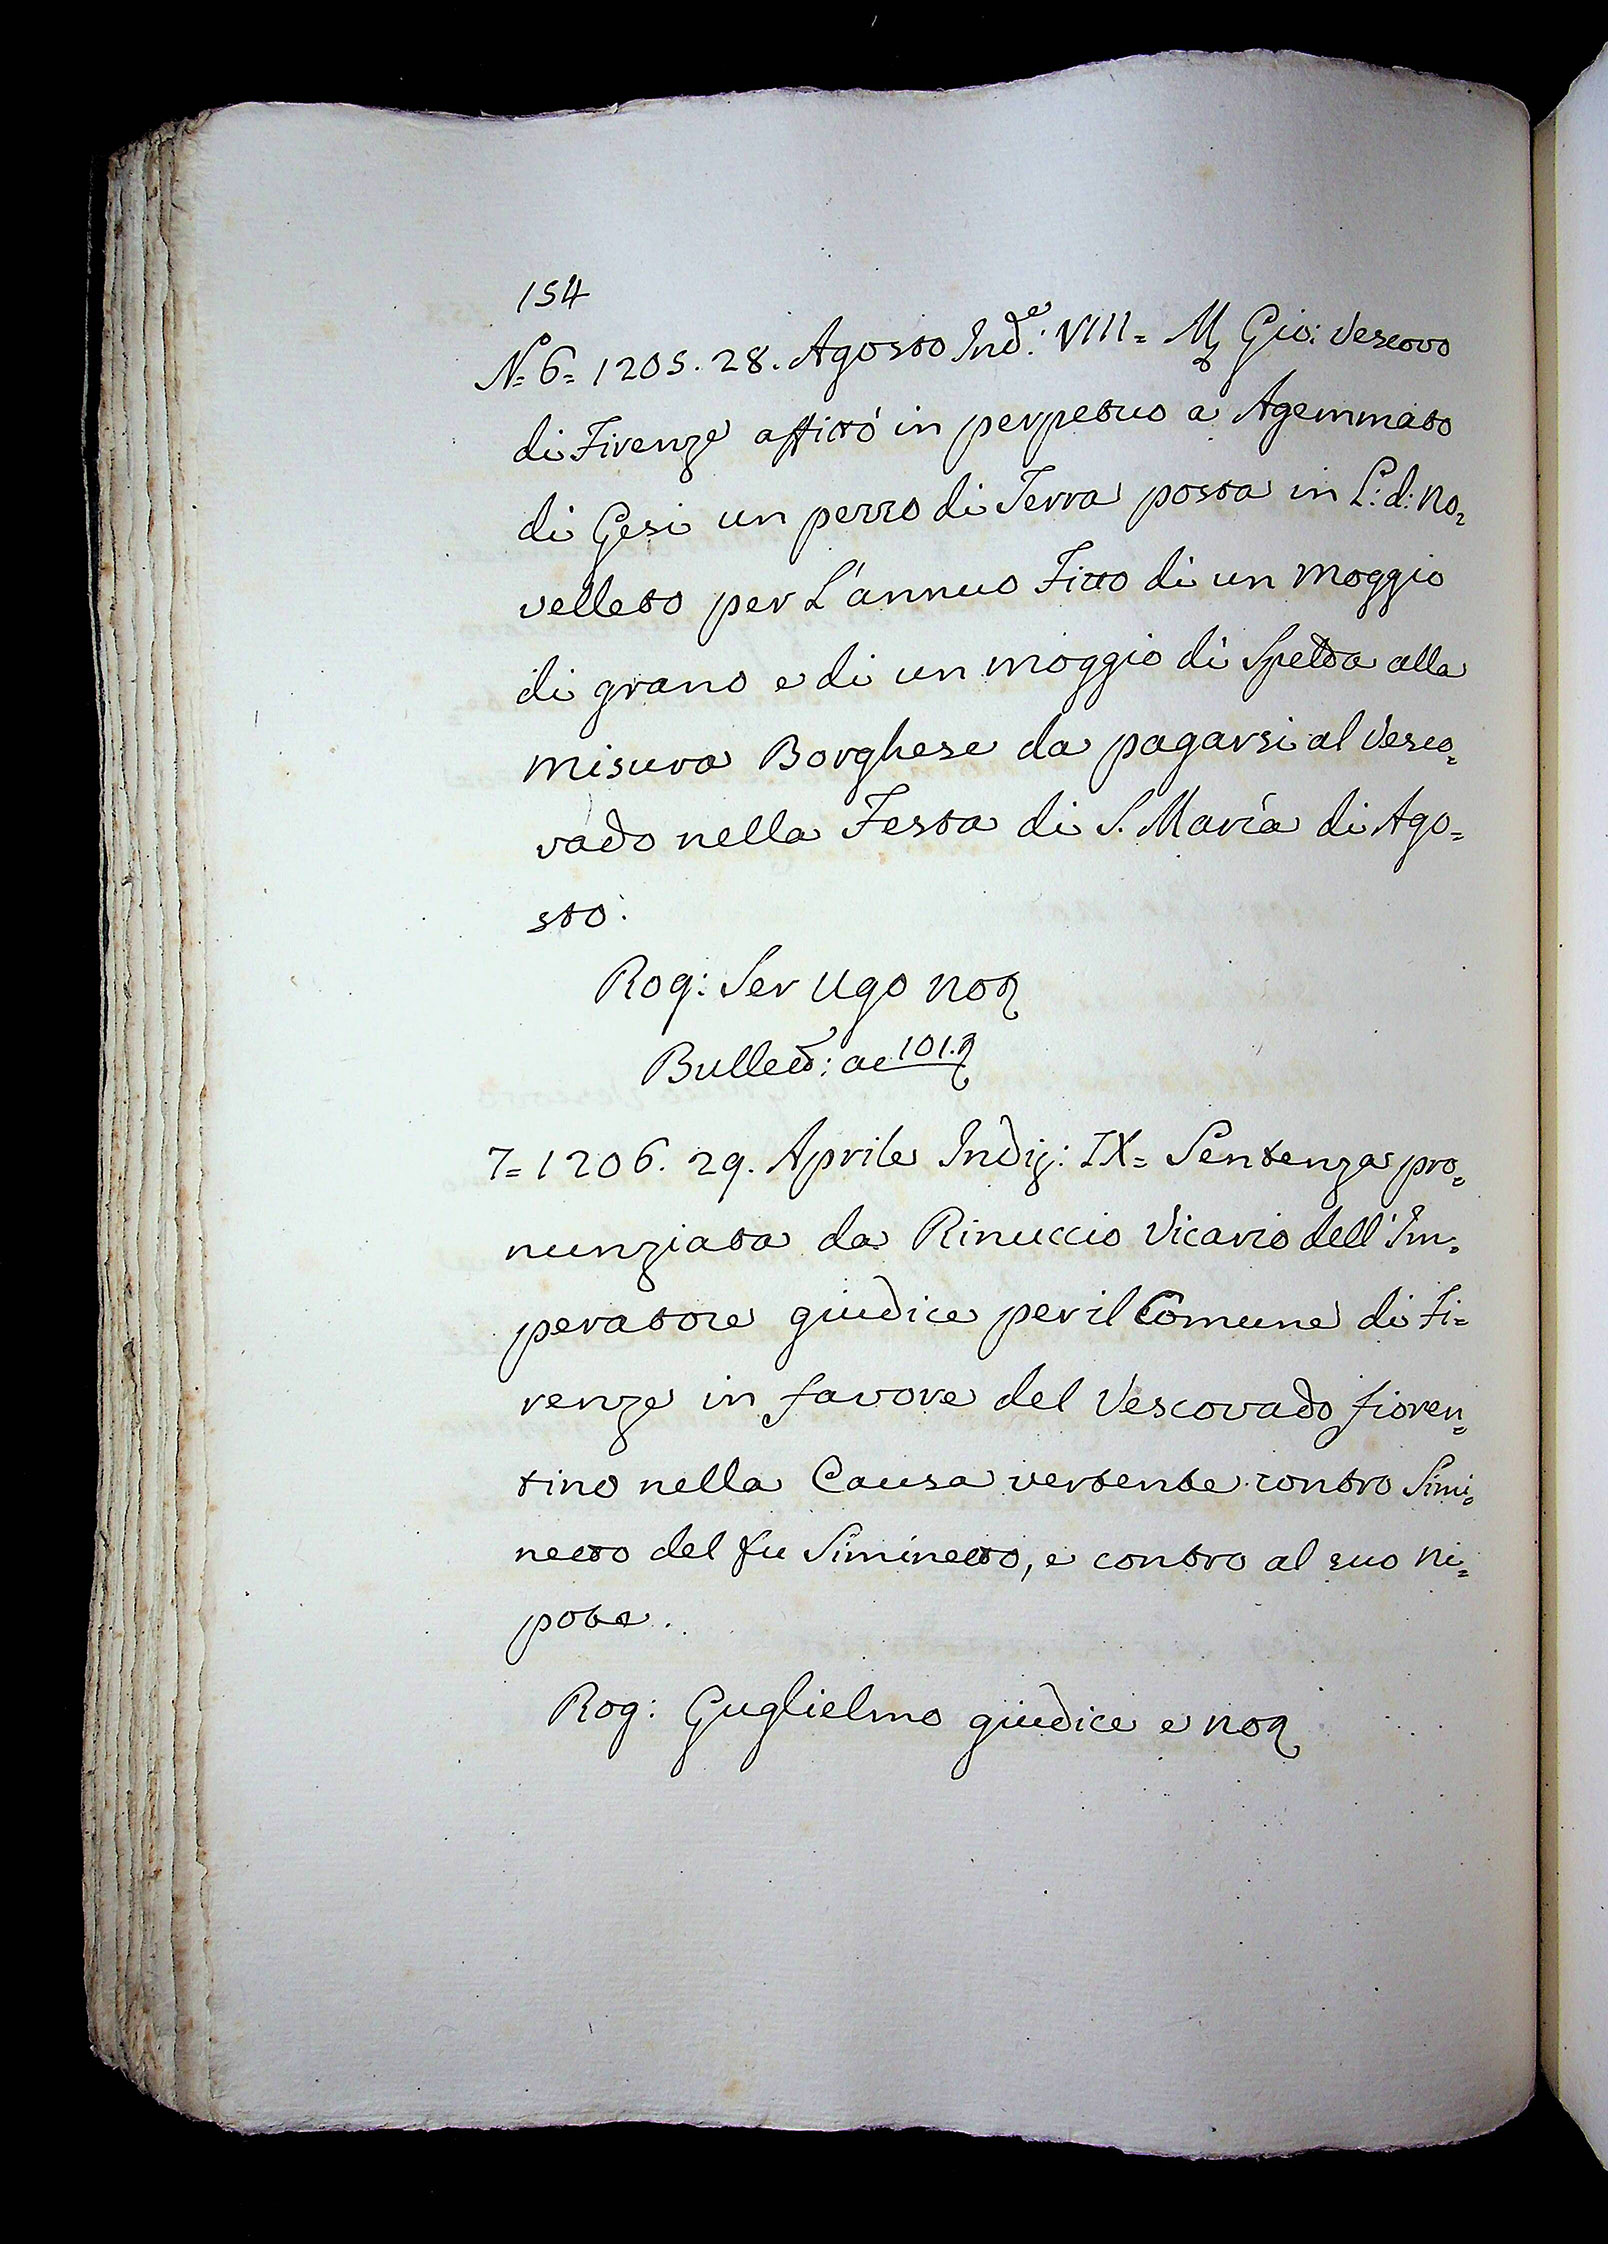 154
N.= 6= 1205. 28. Agosto Ind.e: VIII= M Gio: Vescovo
di Firenze affittò in perpetuo a Agemmato
di Gesi un pezzo di Terra posta in L: d: No=
velleto per L'annuo Fitto di un Moggio
di grano e di un moggio di Spelda alla
misura Borghese da pagarsi al Vesco=
vado nella Festa di S. Maria di Ago=
sto.
Rog: Ser Ugo not
Bullett: ac 101.
7= 1206. 29. Aprile Indiz: IX= Sentenza pro=
nunziata da Rinuccio Vicario dell'Im=
peratore giudice per il Comune di Fi=
renze in favore del Vescovado fioren=
tino nella Causa vertente contro Simi=
netto del fu Siminetto, e contro al suo Ni=
pote.
Rog: Guglielmo giudice e not